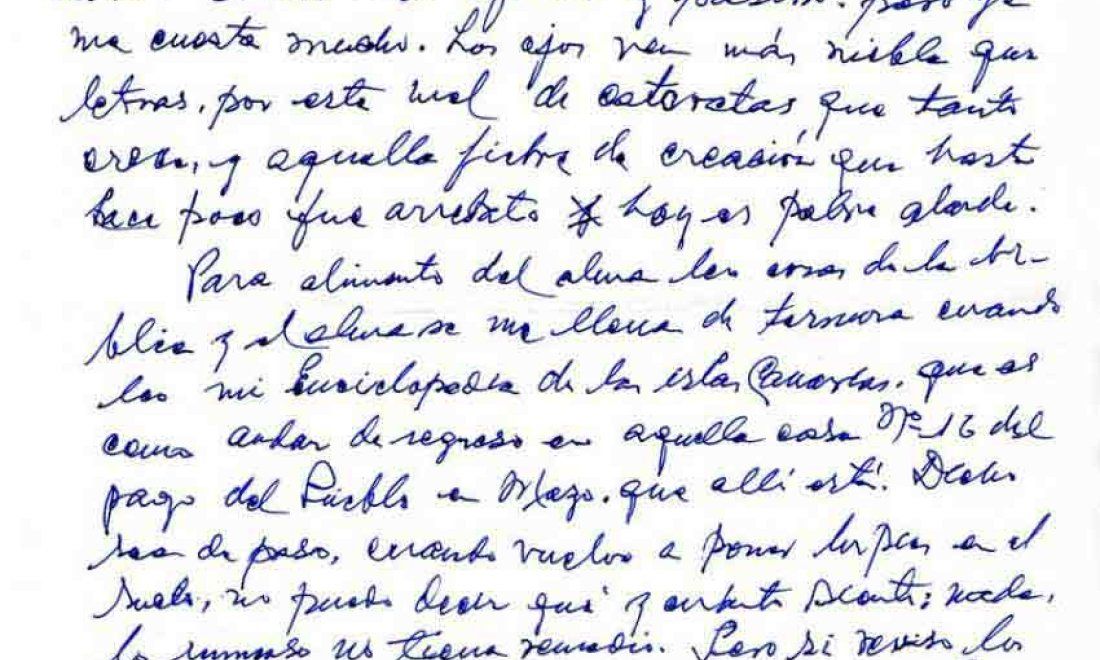 me cuesta mucho. Los ojos ven más niebla que
letras, por este mal de cataratas que tanto
crece, y aquella fiebre de creación que hasta
hace poco fue arrebato hoy es pobre alarde.
Para alimento del alma leo cosas de la bi-
blia y el alma se me llena de ternura cuando
leo mi Enciclopedia de las islas Canarias, que es
como andar de regreso en aquella casa Nº 16 del
pago del Pueblo en Mazo, que allí está. Dicho
sea de paso, cuando vuelvo a poner los pies en el
suelo, no puedo decir qué y cuánto siento; nada,
lo inmenso no tiene remedio. Pero si reviso los